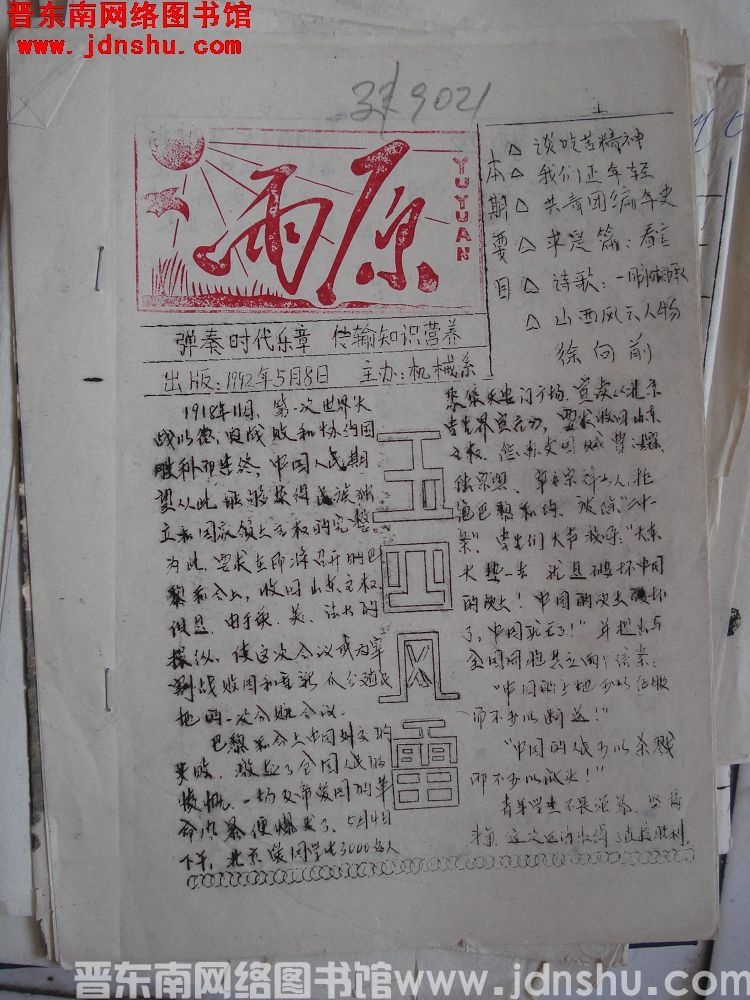 晋东南网络图书馆
www.jdnshu.com
339021
1
雨原
YUYUAN
本期要目
△ 谈吃苦精神
△ 我们正年轻
△ 共青团编年史
△ 求是篇：看言
△ 诗歌：一脉相承
△ 山西风云人物
徐向前
弹奏时代乐章 传输知识营养
出版：1992年5月8日 主办：机械系
五四风雷
1918年11月，第一次世界大
战以德、奥战败和协约国
胜利而告终，中国人民期
望从此能够获得民族独
立和国家领土主权的完整。
为此，要求在即将召开的巴
黎和会上，收回山东主权。
但是，由于英、美、法等的
操纵，使这次会议成为宰
割战败国和重新瓜分殖民
地的一次分赃会议。
巴黎和会上中国外交的
失败，激起了全国人民的
愤慨，一场反帝爱国的革
命风暴便爆发了。5月4日
下午，北京爱国学生3000多人
聚集天安门广场，宣读北京
学生界宣言，要求收回山东
主权，
拒
绝巴黎和约，废除“二十一
条”，学生们大声疾呼：“大东
大势一去，就是破坏中国
的领土！中国的领土破坏
了，中国就亡了！”并提出与
全国同胞共立两个信条：
“中国的土地可以征服
而不可以断送！”
“中国的人民可以杀戮
而不可以低头！”
青年学生不畏强暴，坚持
斗争，这次运动取得了直接胜利。
晋东南网络图书馆www.jdnshu.com